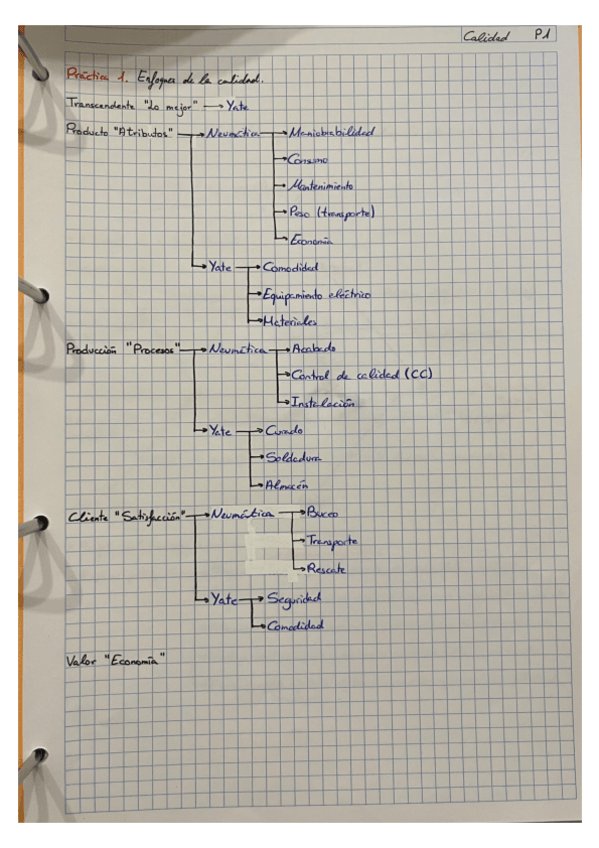 Calidad P1
Práctica 1. Enfoques de la calidad.
Transcendente "Lo mejor" → Yate
Producto "Atributos" → Neumática → Maniobrabilidad
→ Consumo
→ Mantenimiento
→ Peso (transporte)
→ Economía
→ Yate → Comodidad
→ Equipamiento eléctrico
→ Materiales
Producción "Procesos" → Neumática → Acabado
→ Control de calidad (CC)
→ Instalación
→ Yate → Curado
→ Soldadura
→ Almacén
Cliente "Satisfacción" → Neumática → Buceo
→ Transporte
→ Rescate
→ Yate → Seguridad
→ Comodidad
Valor "Economía"